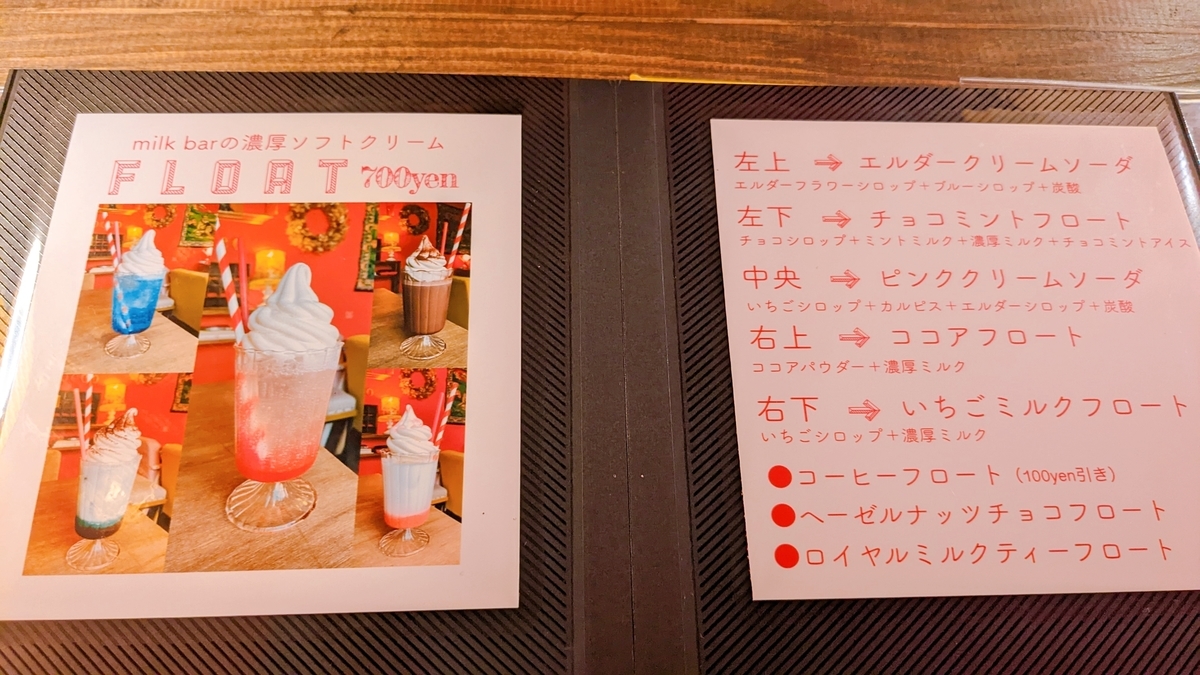 milk barの濃厚ソフトクリーム
FLOAT 700yen
左上 ⇒ エルダークリームソーダ
エルダーフラワーシロップ+ブルーシロップ+炭酸
左下 ⇒ チョコミントフロート
チョコシロップ+ミントミルク+濃厚ミルク+チョコミントアイス
中央 ⇒ ピンククリームソーダ
いちごシロップ+カルピス+エルダーシロップ+炭酸
右上 ⇒ ココアフロート
ココアパウダー+濃厚ミルク
右下 ⇒ いちごミルクフロート
いちごシロップ+濃厚ミルク
●コーヒーフロート(100yen引き)
●ヘーゼルナッツチョコフロート
●ロイヤルミルクティーフロート